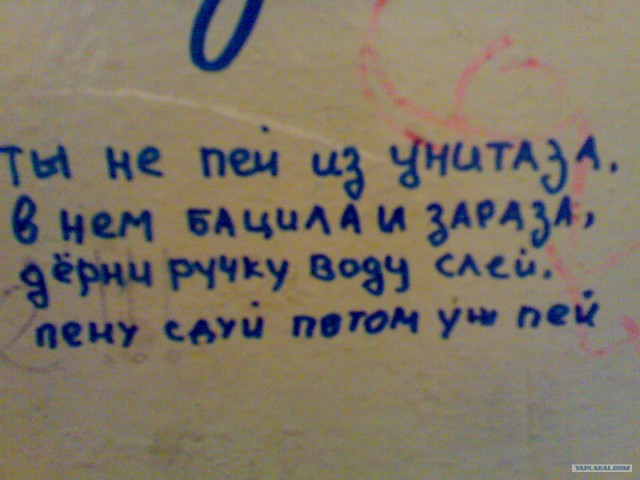 ты не пей из УНИТАЗА.
в нем БАЦИЛА И ЗАРАЗА,
дёрни ручку воду слей.
пену сдуй потом уж пей
YAPLAKAL.COM